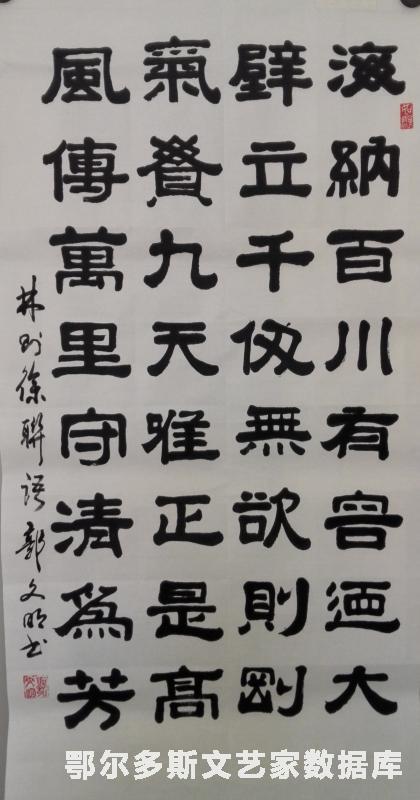 海納百川有容迺大
壁立千仞無欲則剛
氣九天唯正是高
風傳萬里守清為芳
林则徐聯語 郭文明书
鄂尔多斯文艺家数据库